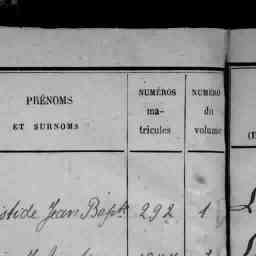 PRÉNOMS
ET SURNOMS
NUMÉROS
ma-
tricules
NUMÉRO
du
volume
Jean Bapte 292 1